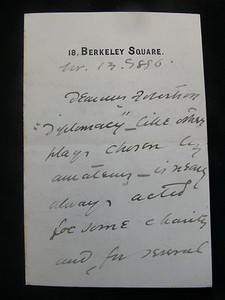 18, BERKELEY SQUARE.
13. 1896.
Robertson
"Diplomacy" - like other
plays chosen by
amateurs - is nearly
always acted
for some charity
and for several